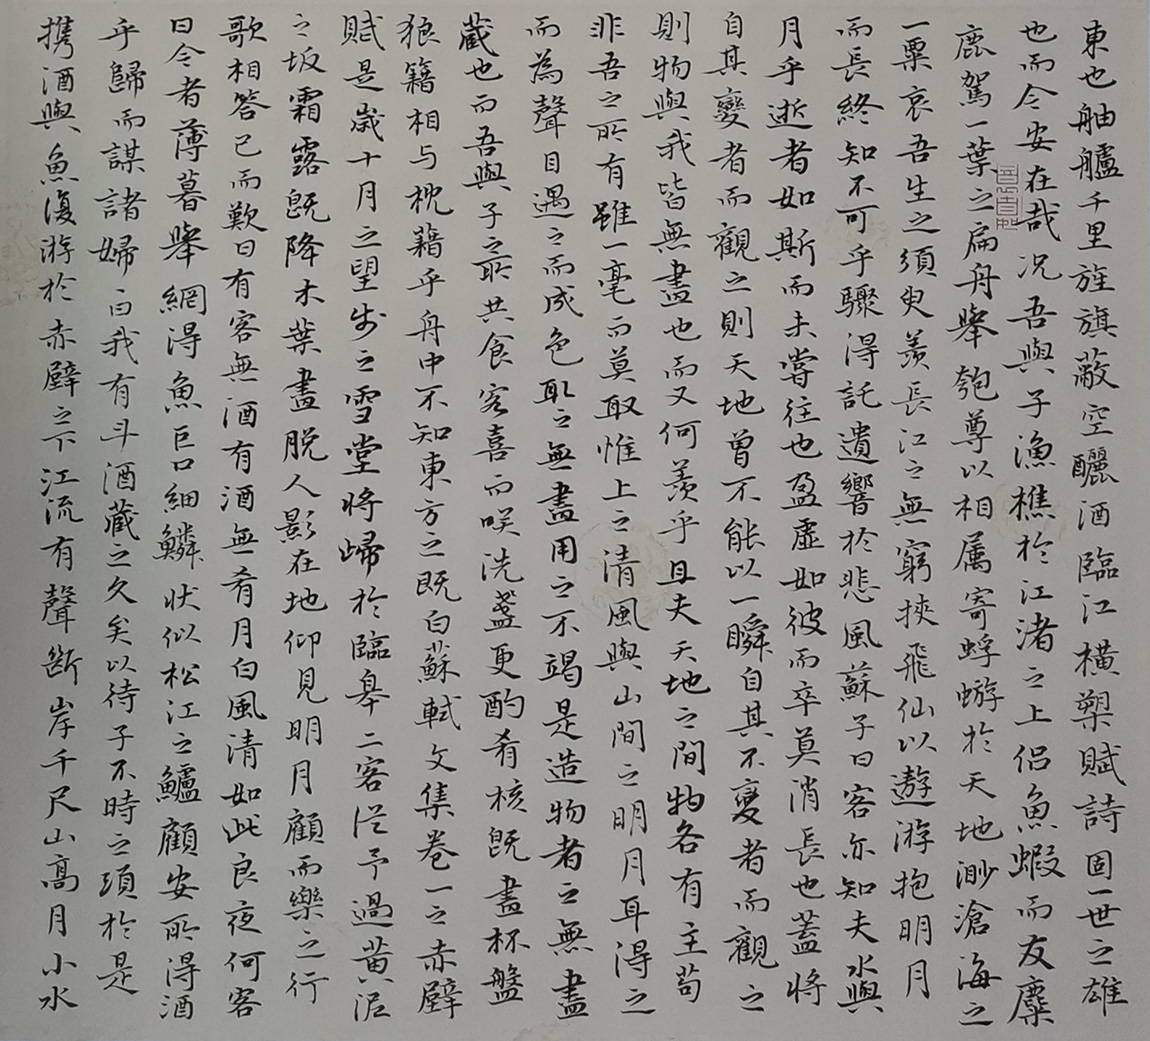 東也舳艫千里旌旗蔽空釃酒臨江橫槊賦詩固一世之雄
也而今安在哉况吾與子漁樵於江渚之上侣魚蝦而友麋
鹿駕一葉之扁舟舉匏尊以相属寄蜉蝣於天地渺滄海之
一粟哀吾生之須臾羨長江之無窮挾飛仙以遨游抱明月
而長終知不可乎驟得託遺響於悲風蘇子曰客亦知夫水與
月乎逝者如斯而未嘗往也盈虛如彼而卒莫消長也蓋將
自其變者而觀之則天地曾不能以一瞬自其不變者而觀之
則物與我皆無盡也而又何羨乎且夫天地之間物各有主苟
非吾之所有雖一毫而莫取惟上之清風與山間之明月耳得之
而為聲目遇之而成色取之無盡用之不竭是造物者之無盡
藏也而吾與子之所共食客喜而咲洗盞更酌肴核既盡杯盤
狼籍相与枕藉乎舟中不知東方之既白蘇軾文集卷一之赤壁
賦是歲十月之望步之雪堂將歸於臨皋二客從予過黃泥
之坂霜露既降木葉盡脱人影在地仰見明月顧而樂之行
歌相答已而歎曰有客無酒有酒無肴月白風清如此良夜何客
曰今者薄暮舉網得魚巨口細鱗狀似松江之鱸顧安所得酒
乎歸而謀諸婦婦曰我有斗酒藏之久矣以待子不時之須於是
携酒與魚復游於赤壁之下江流有聲斷岸千尺山高月小水